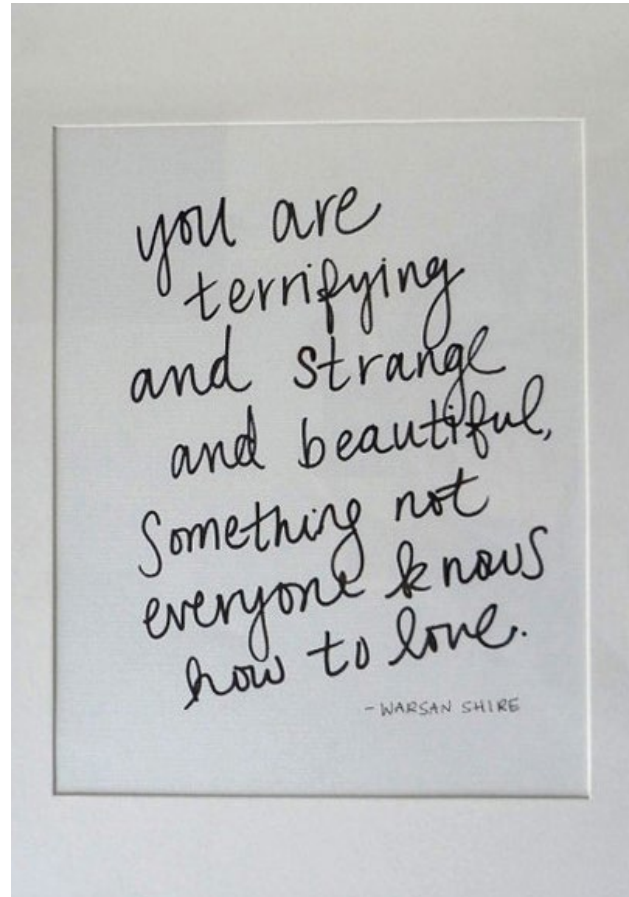 you are
terrifying
and strange
and beautiful,
Something not
everyone knows
how to love.
- WARSAN SHIRE